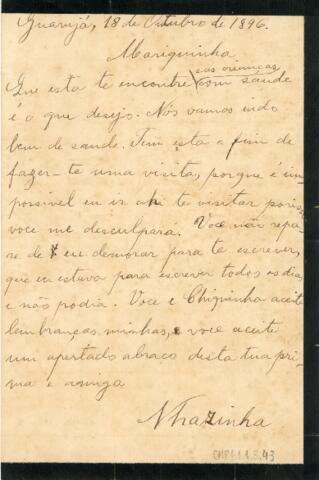 Guarujá, 18 de Outubro de 1896.
Mariquinha
e as crianças
Que esta te encontre com sáude
é o que desejo. Nós vamos indo
bem de saude. Tem esta a fim de
fazer-te uma visita, porque é im-
possivel eu ir ahi te visitar porisso
voce me desculpará. Você não repa-
re de eu demorar para te escrever,
que eu estava para escrever todos os dias
e não podia. Voce e Chiquinha aceite
lembranças minhas, e voce aceite
um apertado abraço desta tua pri-
ma e amiga
Nhazinha